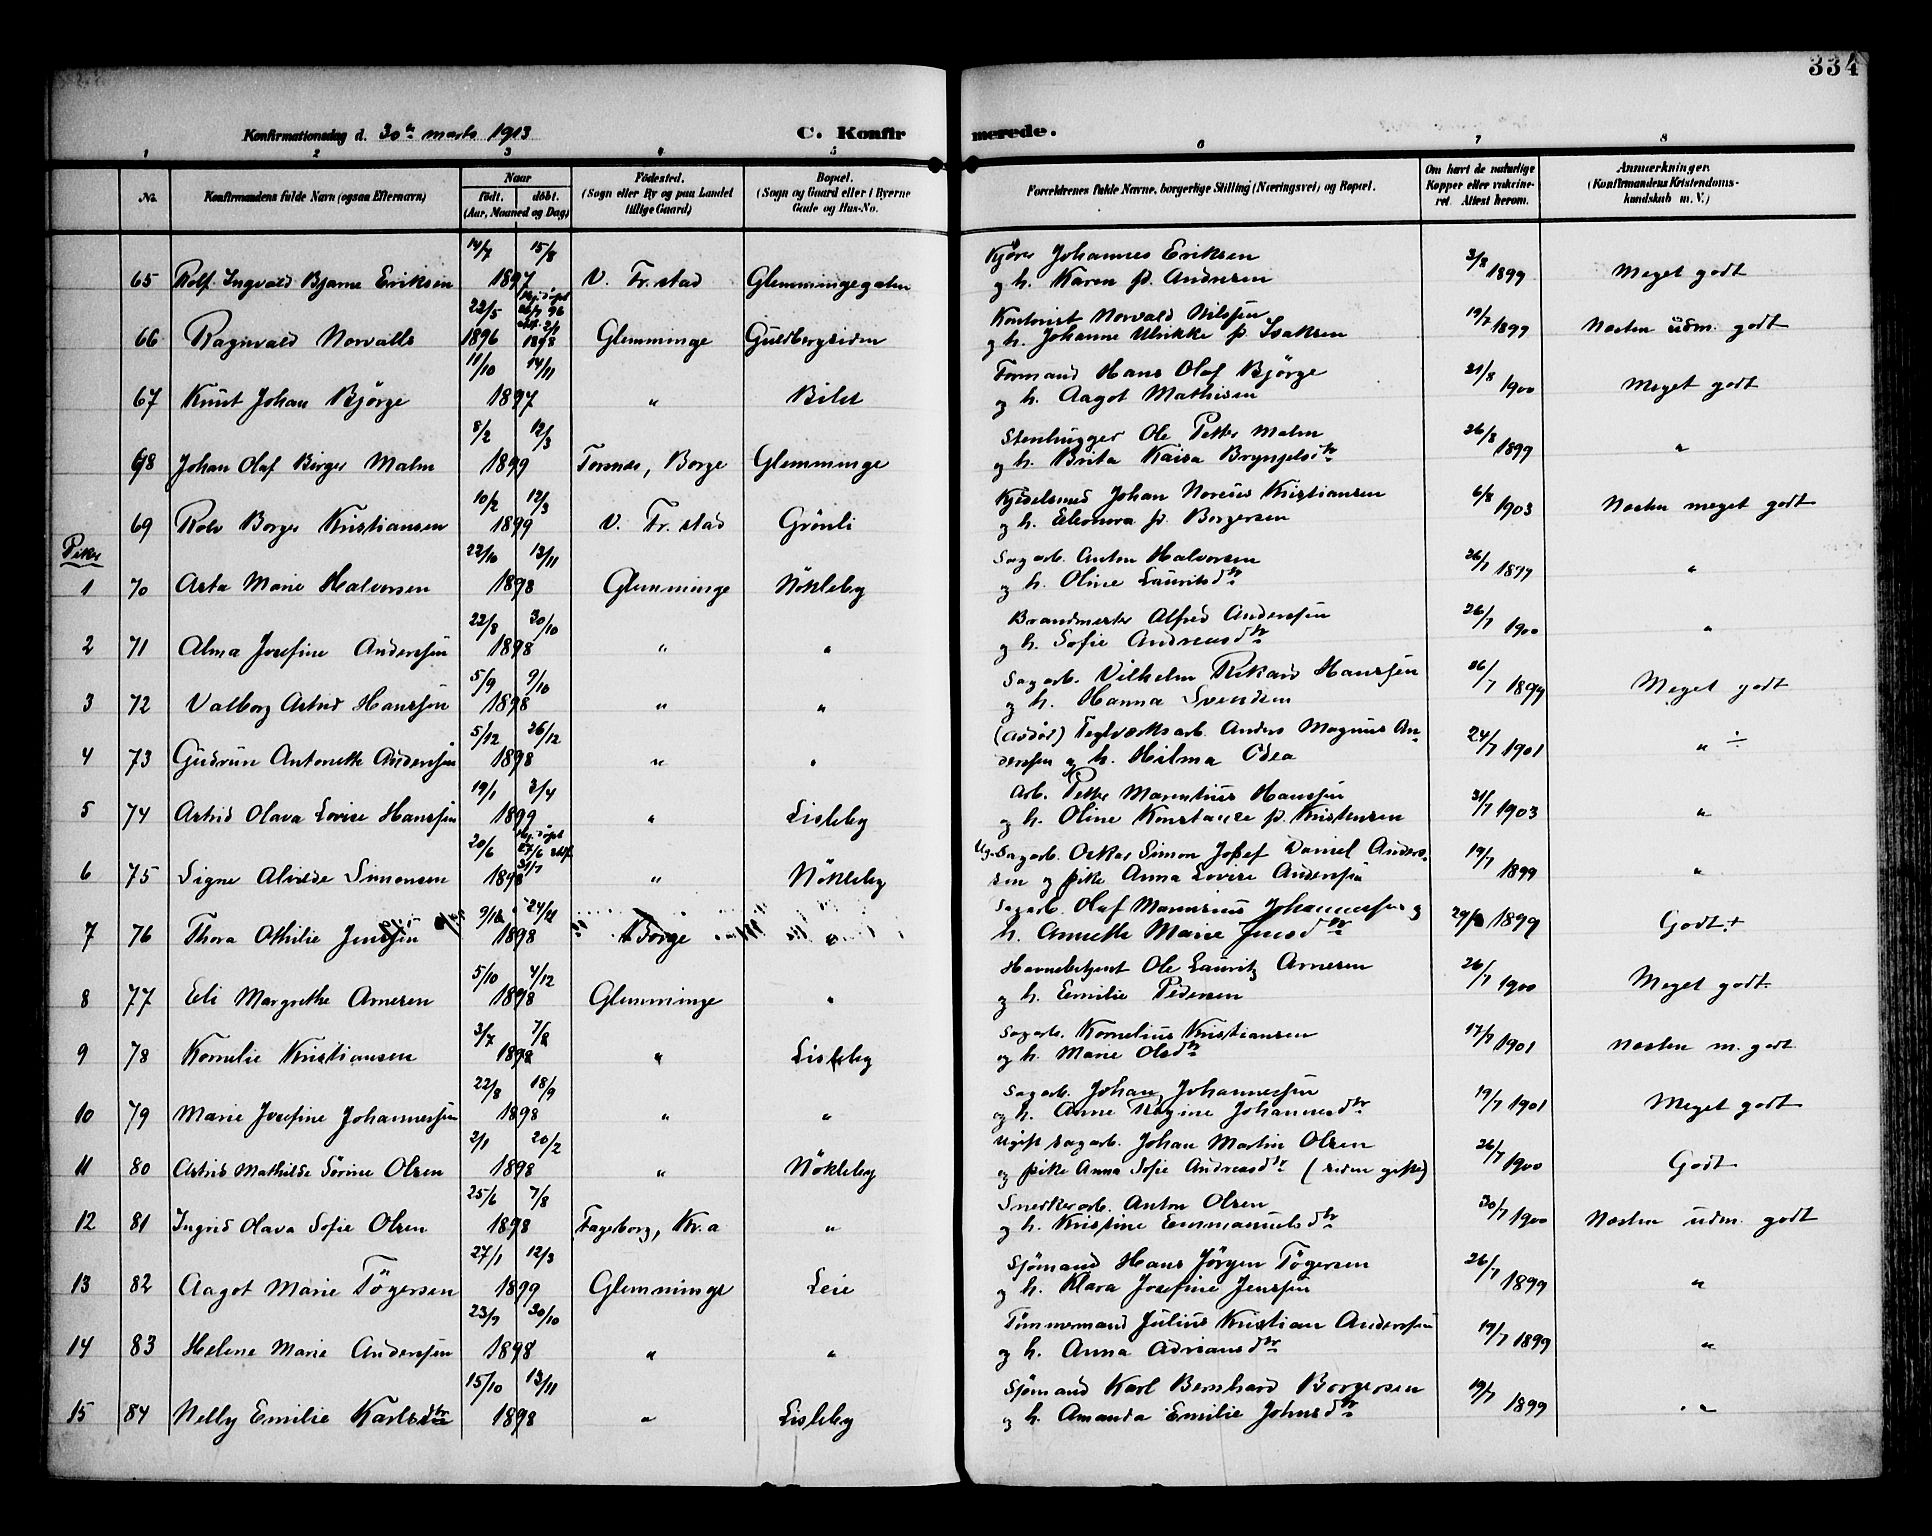 334
Konfirmationsdag d. 30te marts 1913
C. Konfirmerede.
1 2 3 4 5 6 7 8
No. Konfirmandens fulde Navn (ogsaa Efternavn) Naar født. døbt. (Aar, Maaned og Dag) Fødested. (Sogn eller By og paa Landet tillige Gaard) Bopæl. (Sogn og Gaard eller i Byerne Gade og Hus-No. Forældrenes fulde Navne, borgerlige Stilling (Næringsvei) og Bopæl. Om havt de naturlige Kopper eller vakcineret. Attest herom. Anmærkninger. (Konfirmandens Kristendomskundskab m. V.)
14/7 15/8 Kjører Johannes Eriksen 3/8
65 Rolf Ingvald Bjarne Eriksen 1897 V. Fr.stad Glemmingegaten og h. Karen f. Andresen 1899 Meget godt
22/5 Kontorist Norvald Nilssen 19/7
66 Ragnvald Norvalls 1896 1898 Glemminge Guldbergsiden og h. Johanne Ulrikke f. Isaksen 1899 Næsten udm. godt
11/10 14/11 Formand Hans Olaf Bjørge 21/8
67 Knut Johan Bjørge 1897 " Bilet og h. Aagot Mathisen 1900 Meget godt
8/2 12/3 Stenhugger Ole Petter Malm 26/8
68 Johan Olaf Birger Malm 1899 Tornes, Borge Glemminge og h. Brita Kaisa Bryngelsdtr 1899 "
10/2 12/3 Kjedelsmed Johan Norelius Kristiansen 6/8
69 Rolv Borger Kristiansen 1899 V. Fr.stad Grönli og h. Eleonora f. Borgersen 1903 Næsten meget godt
Piker
22/10 13/11 Sagarb. Anton Halvorsen 26/7
1 70 Asta Marie Halvorsen 1898 Glemminge Nökleby og h. Oline Lauritsdtr 1899 "
22/8 30/10 Brandmester Alfred Anderssen 26/7
2 71 Alma Josefine Anderssen 1898 " " og h. Sofie Andreasdtr 1900 "
5/9 9/10 Sagarb. Vilhelm Rikard Hanssen 26/7
3 72 Valborg Astrid Hanssen 1898 " " og h. Hanna Svendsen 1899 Meget godt
5/12 26/12 (avdød) Teglverksarb. Anders Magnus An-
4 73 Gudrun Antonette Anderssen 1898 " " derssen og h. Hilma Odea 24/7 1901 " ÷
19/1 3/4 Arb. Petter Marentius Hanssen
5 74 Astrid Olava Lovise Hanssen 1899 " Lisleby og h. Oline Konstance f. Kristensen 31/7 1903 "
20/6 Ug. Sagarb. Oskar Simon Josef Daniel Anders- 19/7
6 75 Signe Alvilde Simonsen 1898 " Nökleby sen og pike Anna Lovise Anderssen 1899 "
9/12 Sagarb. Olaf Mamsrius Johannessen og
7 76 Thora Othilie Jenssen 1898 Borge " h. Annette Marie Jensdtr 1899 Godt +
5/10 4/12 Havnebetjent Ole Lauritz Arnesen 26/7
8 77 Eli Margrethe Arnesen 1898 Glemminge " og h. Emilie Pedersen 1900 Meget godt
3/7 7/8 Sagarb. Kornelius Kristiansen 17/7
9 78 Kornelie Kristiansen 1898 " Lisleby og h. Marie Olsdtr 1901 Næsten m. godt
22/8 18/9 Sagarb. Johan Johannessen 19/7
10 79 Marie Josefine Johannessen 1898 " " og h. Anne Regine Johannesdtr 1901 Meget godt
2/1 20/2 Ugift sagarb. Johan Martin Olsen 26/7
11 80 Astrid Mathilde Sörine Olsen 1898 " Nökleby og pike Anna Sofie Andreasdtr (siden gifte) 1900 Godt
25/6 7/8 Snedkerarb. Anton Olsen 30/7
12 81 Ingrid Olava Sofie Olsen 1898 Fageborg, Kr.a " og h. Kristine Emmanuelsdtr 1900 Næsten udm. godt
27/1 12/3 Sjømand Hans Jörgen Tögersen 26/7
13 82 Aagot Marie Tögersen 1899 Glemminge Leie og h. Klara Josefine Jenssen 1899 "
23/9 30/10 Tømmermand Julius Kristian Anderssen 19/7
14 83 Helene Marie Anderssen 1898 " " og h. Anna Adriansdtr 1899 "
15/10 13/11 Sjømand Karl Bernhard Borgersen 19/7
15 84 Nelly Emilie Karlsdtr 1898 " Lisleby og h. Amanda Emilie Johnsdtr 1899 "